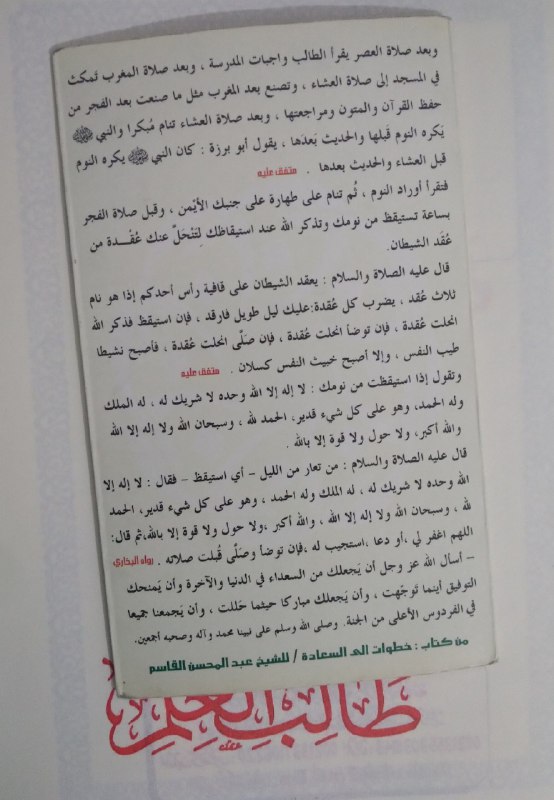 وبعد صلاة العصر يقرأ الطالب واجبات المدرسة ، وبعد صلاة المغرب تمكث
في المسجد إلى صلاة العشاء ، وتصنع بعد المغرب مثل ما صنعت بعد الفجر من
حفظ القرآن والمتون ومراجعتها ، وبعد صلاة العشاء تنام مُبكرا والنبي ﷺ
يَكره النوم قَبلها والحديث بَعدَها ، يقول أبو برزة : كان النبي ﷺ يكره النوم
قبل العشاء والحديث بعدها . متفق عليه
فتقرأ أوراد النوم ، ثُم تنام على طهارة على جنبك الأيْمن ، وقبل صلاة الفجر
بساعة تستيقظ من نومك وتذكر الله عند استيقاظك لِتَنْحَلَّ عنك عُقْدة من
عُقَد الشيطان.
قال عليه الصلاة والسلام : يعقد الشيطان على قافية رأس أحدكم إذا هو نام
ثلاث عُقد ، يضرب كل عُقدة:عليك ليل طويل فارقد ، فإن استيقظ فذكر الله
انحلت عُقدة ، فإن توضأ انحلت عُقدة ، فإن صَلَّى انحلت عُقدة ، فأصبح نشيطا
طيب النفس ، وإلا أصبح خبيث النفس كسلان . متفق عليه
وتقول إذا استيقظت من نومك : لا إله إلا الله وحده لا شريك له ، له الملك
وله الحمد، وهو على كل شيء قدير، الحمد لله ، وسبحان الله ولا إله إلا الله
والله أكبر، ولا حول ولا قوة إلا بالله .
قال عليه الصلاة والسلام : من تعار من الليل – أي استيقظ – فقال : لا إله إلا
الله وحده لا شريك له ، له الملك وله الحمد ، وهو على كل شيء قدير، الحمد
لله ، وسبحان الله ولا إله إلا الله ، والله أكبر ،ولا حول ولا قوة إلا بالله،ثم قال:
اللهم اغفر لي ،أو دعا ،استجيب له ،فإن توضأ وصَلَّى قُبلت صلاته . رواه البخاري
– أسأل الله عز وجل أن يَجعلك من السعداء في الدنيا والآخرة وأن يَمنحك
التوفيق أينما تَوجَّهت ، وأن يَجعلك مباركا حيثما حَللت ، وأن يَجمعنا جميعا
في الفردوس الأعلى من الجنة. وصلى الله وسلم على نبينا محمد وآله وصحبه أجمعين.
من كتاب : خطوات الى السعادة / للشيخ عبد المحسن القاسم
طَالِبُ العِلْمِ